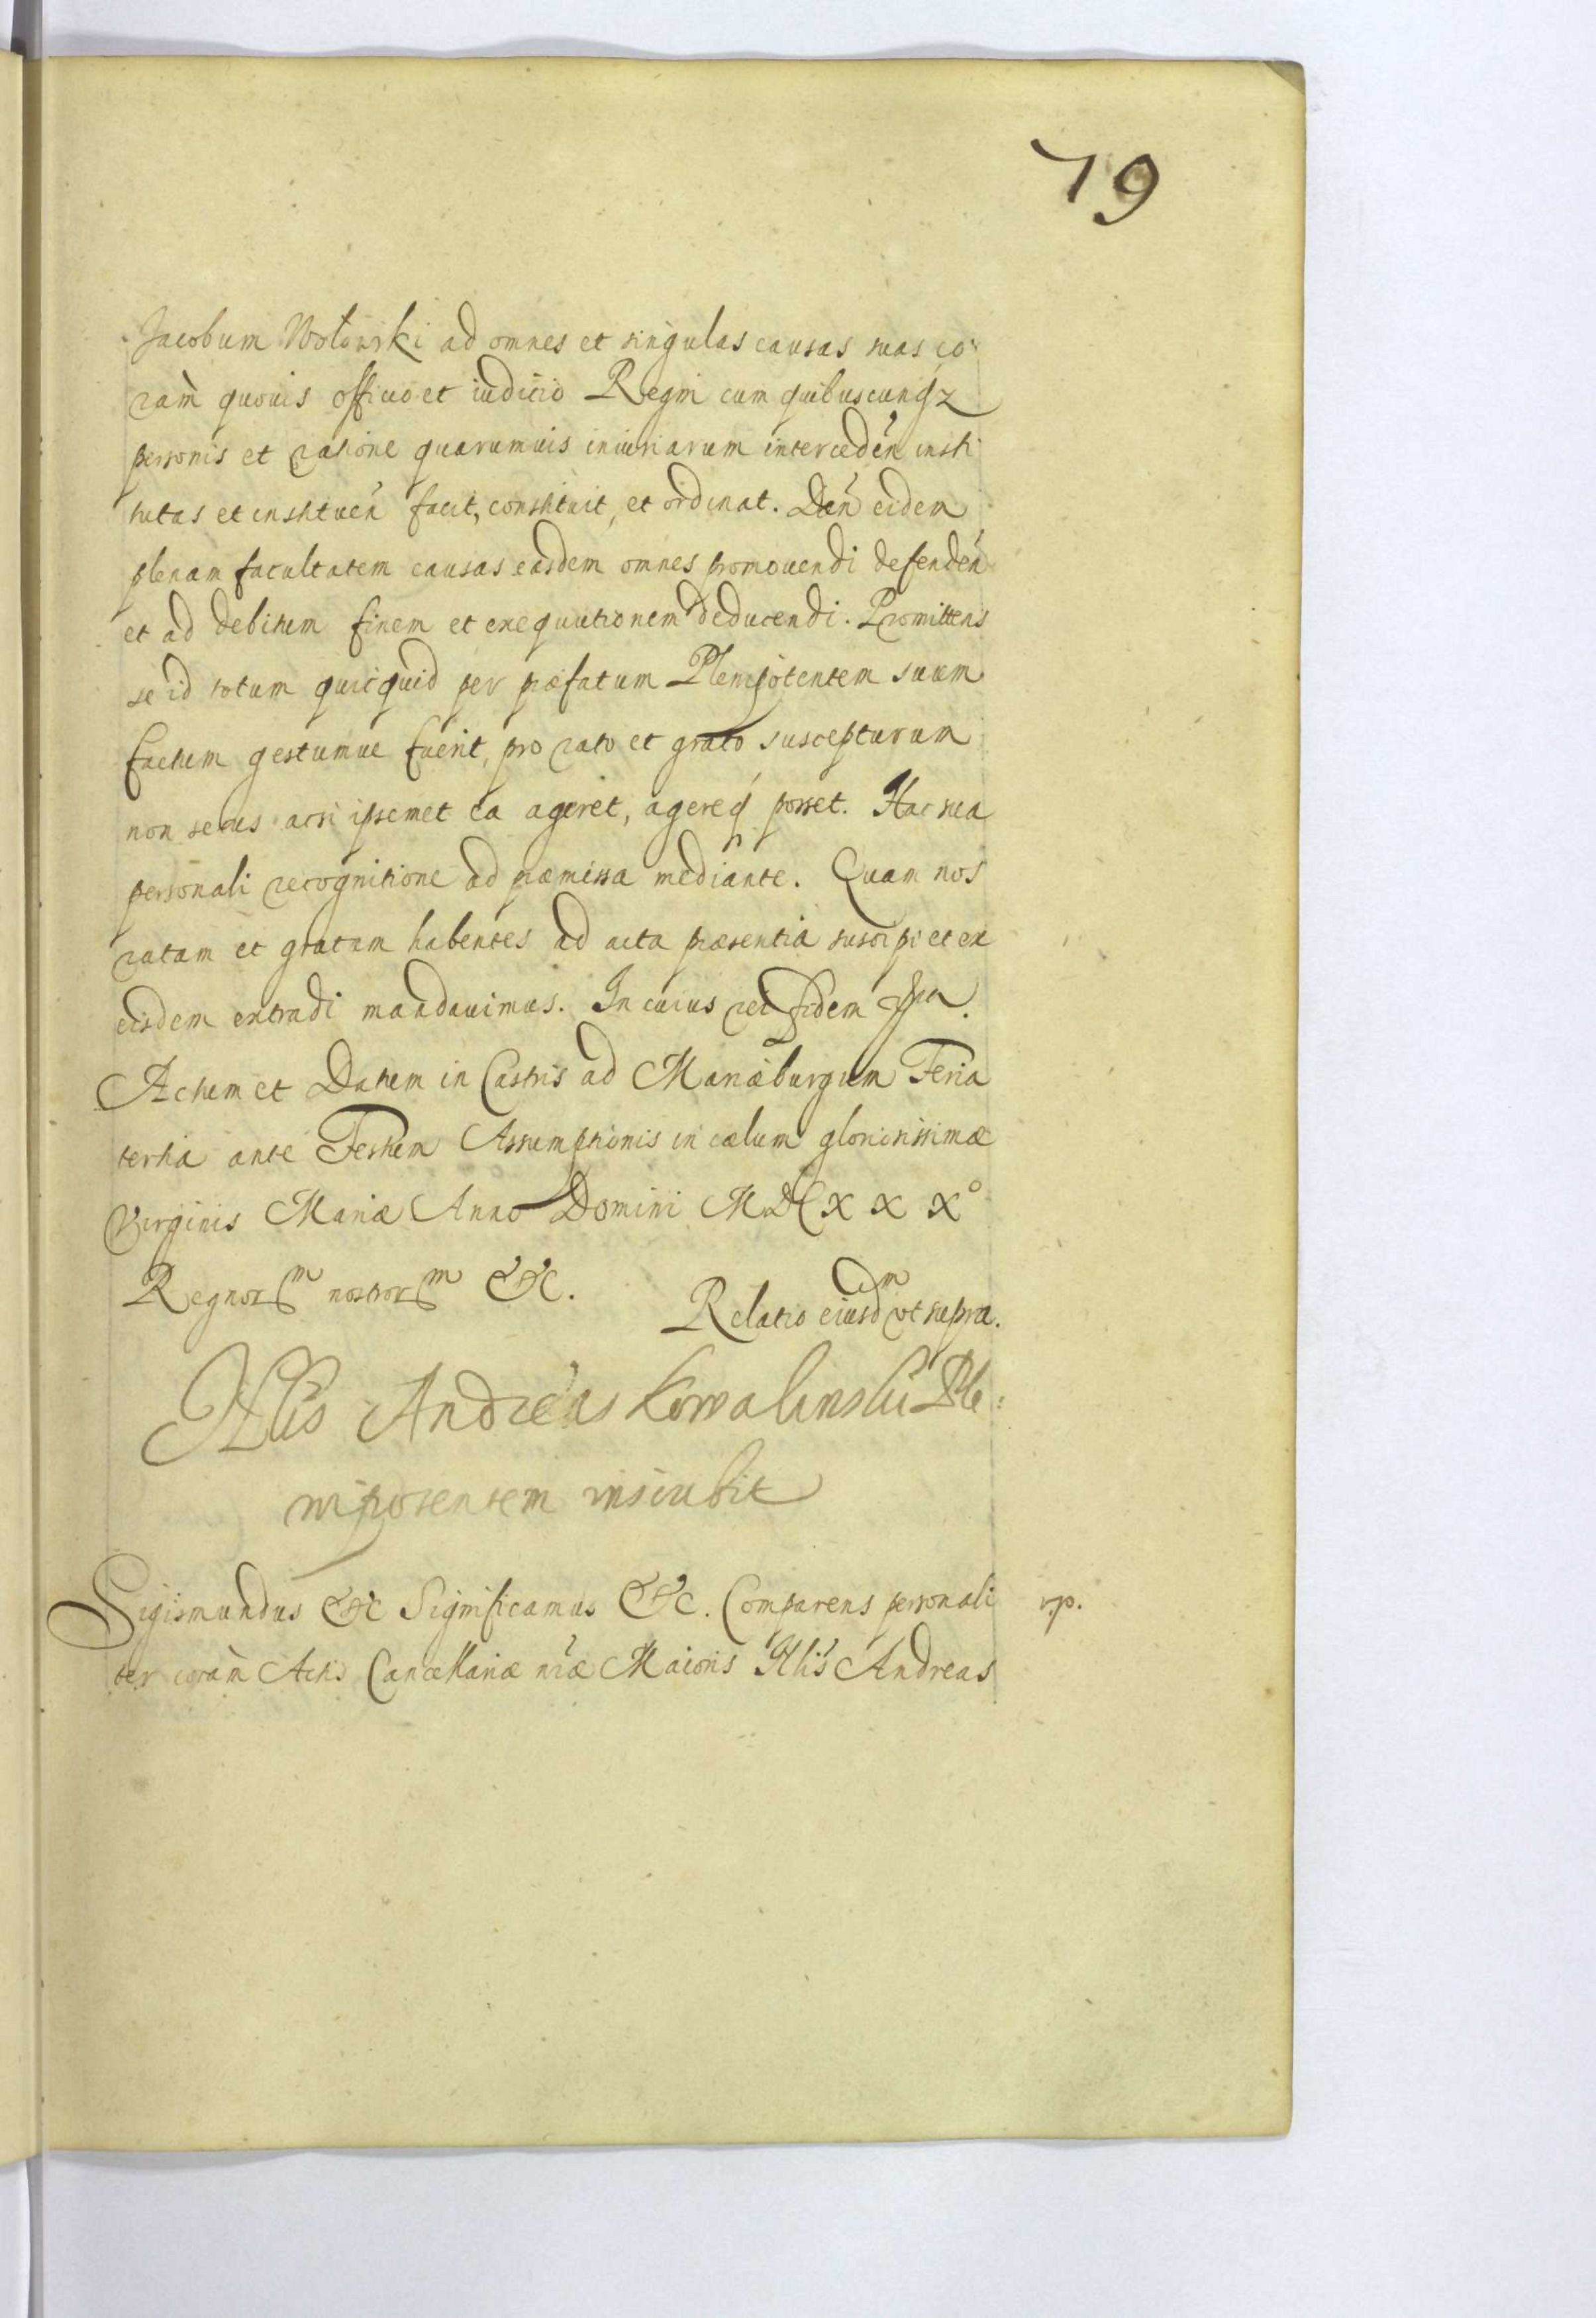 79
Jacobum Wołowski ad omnes et singulas causas suas co
ram quouis officio et iudicio Regni cum quibuscunqz
personis et ratione quarumuis iniuriarum interceden insti
tutas et instituen facit, constituit, et ordinat. Dan eidem
plenam facultatem causas easdem omnes promouendi defenden
et ad debitum finem et exequutionem deducendi. Promittens
se id totum quicquid per præfatum Plenipotentem suum
factum gestumue fuerit, pro rato et grato suscepturum
non secus acsi ipsemet ea ageret, agereq posset. Hac sua
personali recognitione ad præmissa mediante. Quam nos
ratam et gratam habentes ad acta præsentia suscipi et ex
eisdem extradi mandauimus. In cuius rei fidem
Actum et Datum in Castris ad Mariæburgum Feria
tertia ante Festum Assumptionis in cælum gloriosissimæ
Virginis Mariæ Anno Domini MDCXXX°
Regnorm nostrorm &c.
Relatio eiusdm vt supra.
Illis Andreas Kowalinski Ple:
nipotentem inscribit
Sigismundus &c Significamus &c. Comparens personali
ter coràm Actis Cancellariæ nræ Maioris Illis Andreas